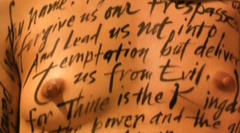 thy name.
forgive us our trespasse
And lead us not into
temptation but deliver
us from Evil.
for Thine is the Kingd
the power and the